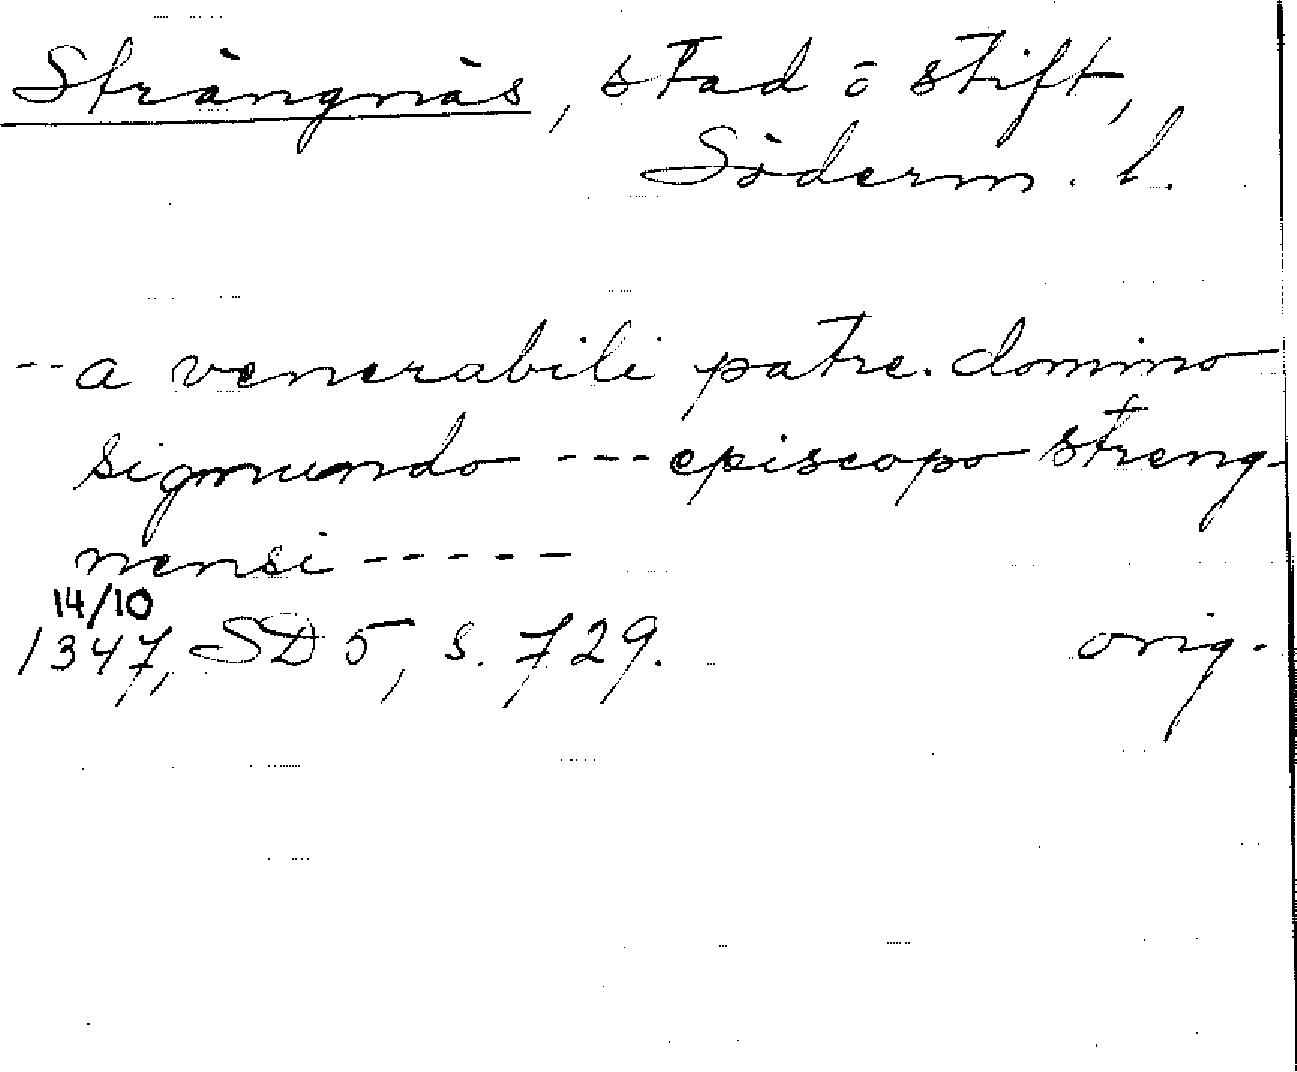 Strängnäs, stad o stift,
Söderm. l.
-- a venerabili patre. domino
sigmundo --- episcopo streng-
nensi -----
14/10
1347, SD 5, s. 729. orig.